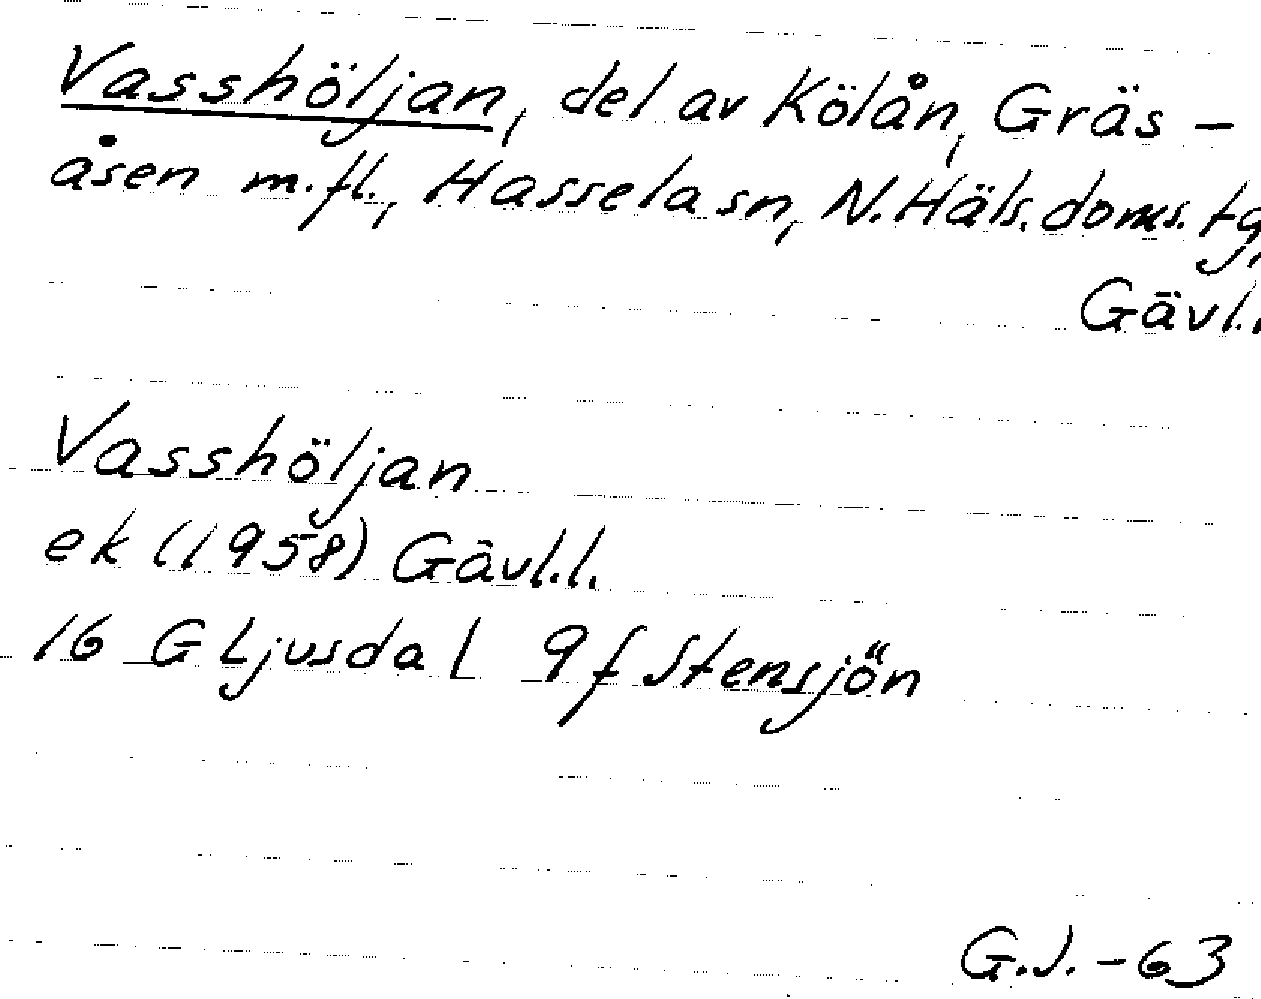 Vasshöljan, del av Kölån, Gräs-
åsen m.fl., Hassela sn, N.Häls.doms.tg,
Gävl.l.
Vasshöljan
ek (1958) Gävl.l.
16 G Ljusdal 9f Stensjön
G.J.-63